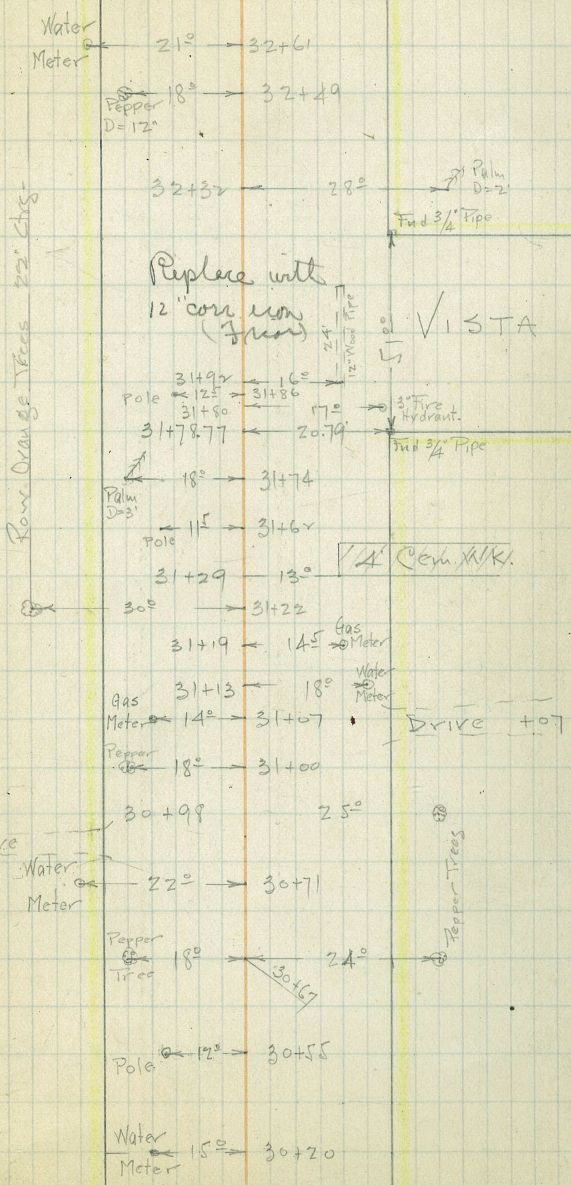 Water
Meter
21⁰ 32+61
18⁰ 32+49
Pepper
D=12"
32+32 28⁰
Palm
D=2'
Fnd 3/4" Pipe
Row Orange Trees 22' Ctrs-
Replace with
12" corr iron
24'
12" Wood Pipe
51⁰⁰
VISTA
31+92 16⁰
Pole 12⁵ 31+86
31+80 17⁰
3" Fire
Hydrant.
31+78.77 20.79'
Fnd 3/4" Pipe
18⁰ 31+74
Palm
D=3'
11⁵ 31+62
Pole
4' Cem. Wk.
31+29 13⁰
30⁰ 31+22
31+19 14⁵
Gas
Meter
31+13 18⁰
Water
Meter
Gas
Meter 14⁰ 31+07
Drive +07
Pepper
18⁰ 31+00
30+98 25⁰
Water
Meter
22⁰ 30+71
Pepper Trees
Pepper
Tree
18⁰ 24⁰
30+67
Pole 12⁵ 30+55
Water
Meter
15⁰ 30+20